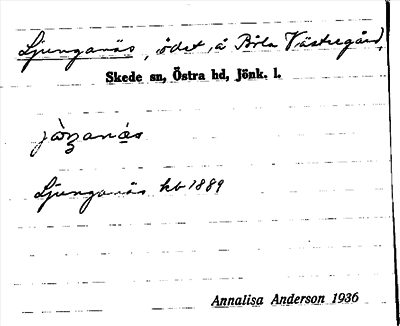 Ljunganäs, ödet, å Böla Västregård,
Skede sn, Östra hd, Jönk. l.
Ljunganäs kb 1889
Annalisa Anderson 1936